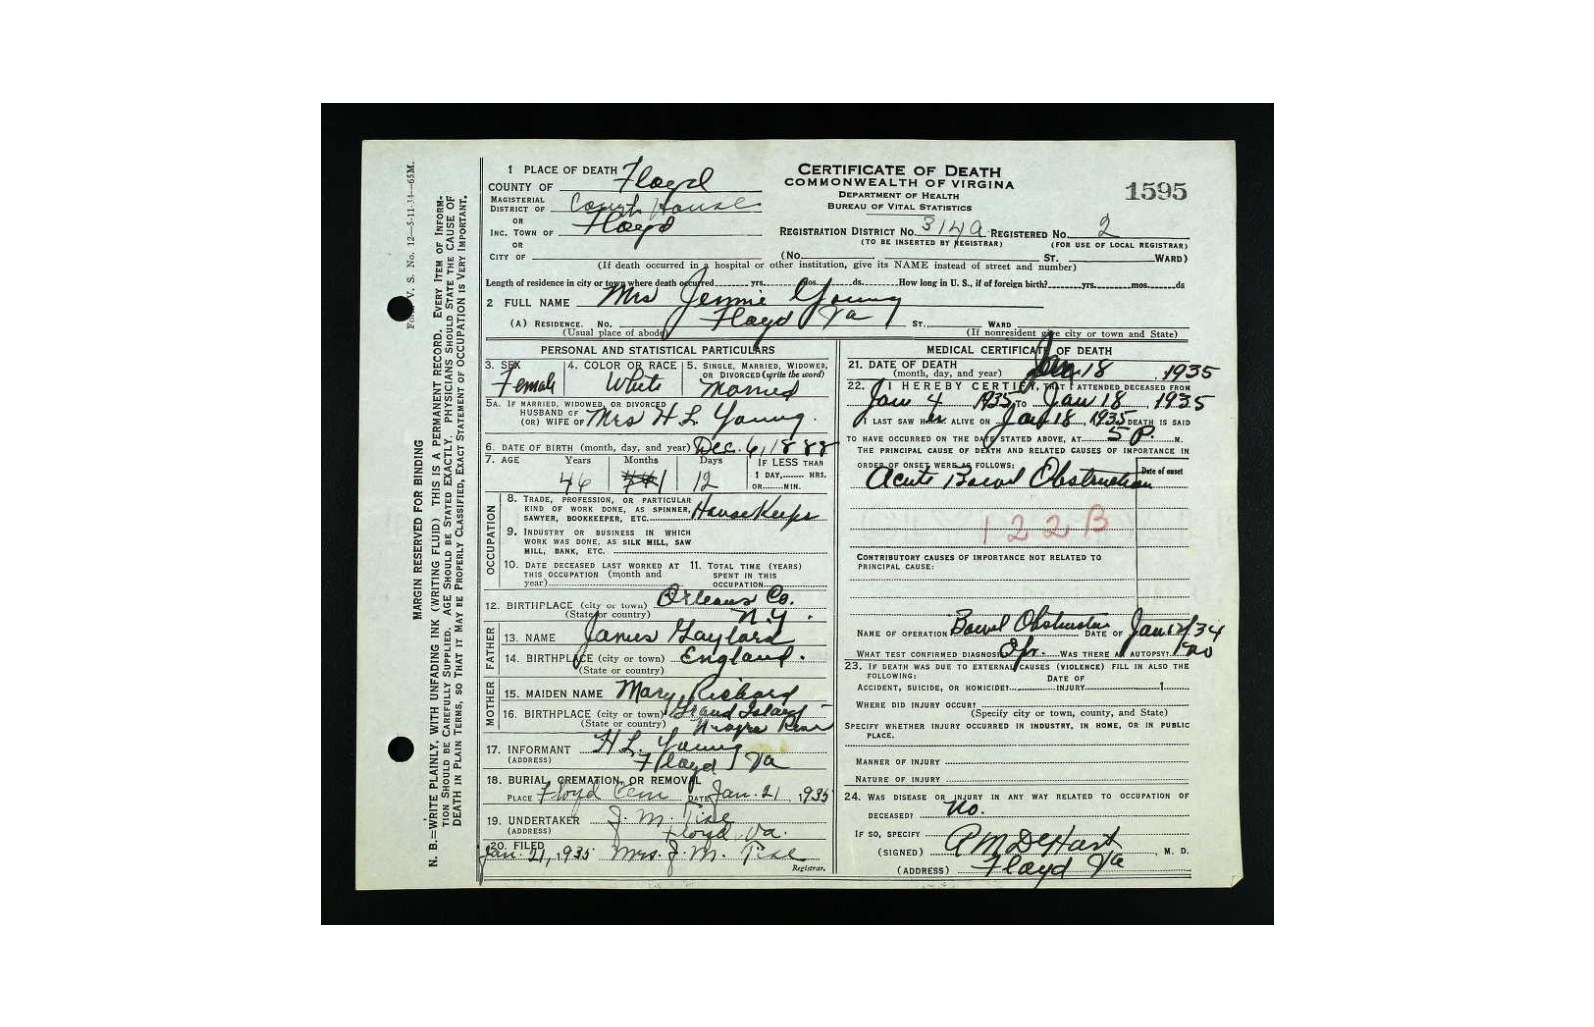 Form V. S. No. 12—5-11-34—65M.
MARGIN RESERVED FOR BINDING
N. B.—WRITE PLAINLY, WITH UNFADING INK (WRITING FLUID) THIS IS A PERMANENT RECORD. EVERY ITEM OF INFORM-
TION SHOULD BE CAREFULLY SUPPLIED. AGE SHOULD BE STATED EXACTLY. PHYSICIANS SHOULD STATE THE CAUSE OF
DEATH IN PLAIN TERMS, SO THAT IT MAY BE PROPERLY CLASSIFIED. EXACT STATEMENT OF OCCUPATION IS VERY IMPORTANT.
CERTIFICATE OF DEATH
COMMONWEALTH OF VIRGINA
DEPARTMENT OF HEALTH
BUREAU OF VITAL STATISTICS
1595
1 PLACE OF DEATH
COUNTY OF Floyd
MAGISTERIAL
DISTRICT OF Court House
OR
INC. TOWN OF Floyd
OR
CITY OF
REGISTRATION DISTRICT NO. 314a REGISTERED NO. 2
(TO BE INSERTED BY REGISTRAR) (FOR USE OF LOCAL REGISTRAR)
(No. ST. WARD)
(If death occurred in a hospital or other institution, give its NAME instead of street and number)
Length of residence in city or town where death occurred yrs. mos. ds. How long in U. S., if of foreign birth? yrs. mos. ds
2 FULL NAME Mrs Jennie Young
(A) RESIDENCE. No. Floyd Va ST. WARD
(Usual place of abode) (If nonresident give city or town and State)
PERSONAL AND STATISTICAL PARTICULARS
3. SEX Female
4. COLOR OR RACE White
5. SINGLE, MARRIED, WIDOWED,
OR DIVORCED (write the word) Married
5A. IF MARRIED, WIDOWED, OR DIVORCED
HUSBAND OF
(OR) WIFE OF Mrs H L Young
6. DATE OF BIRTH (month, day, and year) Dec. 6, 1888
7. AGE Years Months Days IF LESS THAN
46 1 12 1 DAY, HRS.
OR MIN.
OCCUPATION
8. TRADE, PROFESSION, OR PARTICULAR
KIND OF WORK DONE, AS SPINNER,
SAWYER, BOOKKEEPER, ETC. House Keeper
9. INDUSTRY OR BUSINESS IN WHICH
WORK WAS DONE, AS SILK MILL, SAW
MILL, BANK, ETC.
10. DATE DECEASED LAST WORKED AT
THIS OCCUPATION (month and
year)
11. TOTAL TIME (YEARS)
SPENT IN THIS
OCCUPATION
12. BIRTHPLACE (city or town) Orleans Co.
(State or country) N.Y.
FATHER
13. NAME James Gaylord
14. BIRTHPLACE (city or town) England.
(State or country)
MOTHER
15. MAIDEN NAME Mary Richard
16. BIRTHPLACE (city or town) Grand Island
(State or country)
17. INFORMANT H L Young
(ADDRESS) Floyd Va
18. BURIAL, CREMATION, OR REMOVAL
PLACE Floyd Cem DATE Jan. 21, 1935
19. UNDERTAKER J. M.
(ADDRESS) Floyd, Va.
20. FILED
Jan. 21, 1935 Mrs. J. M.
Registrar.
MEDICAL CERTIFICATE OF DEATH
21. DATE OF DEATH
(month, day, and year) Jan 18, 1935
22. I HEREBY CERTIFY, THAT I ATTENDED DECEASED FROM
Jan 4 1935 TO Jan 18, 1935
I LAST SAW HER ALIVE ON Jan 18, 1935 DEATH IS SAID
TO HAVE OCCURRED ON THE DATE STATED ABOVE, AT 5 P. M.
THE PRINCIPAL CAUSE OF DEATH AND RELATED CAUSES OF IMPORTANCE IN
ORDER OF ONSET WERE AS FOLLOWS: Date of onset
Acute Bowel Obstruction
122B
CONTRIBUTORY CAUSES OF IMPORTANCE NOT RELATED TO
PRINCIPAL CAUSE:
NAME OF OPERATION Bowel Obstruction DATE OF
WHAT TEST CONFIRMED DIAGNOSIS? Opr. WAS THERE AN AUTOPSY? no
23. IF DEATH WAS DUE TO EXTERNAL CAUSES (VIOLENCE) FILL IN ALSO THE
FOLLOWING:
DATE OF
ACCIDENT, SUICIDE, OR HOMICIDE? INJURY 1
WHERE DID INJURY OCCUR?
(Specify city or town, county, and State)
SPECIFY WHETHER INJURY OCCURRED IN INDUSTRY, IN HOME, OR IN PUBLIC
PLACE.
MANNER OF INJURY
NATURE OF INJURY
24. WAS DISEASE OR INJURY IN ANY WAY RELATED TO OCCUPATION OF
DECEASED? No.
IF SO, SPECIFY
(SIGNED) R M DeHart, M. D.
(ADDRESS) Floyd Va